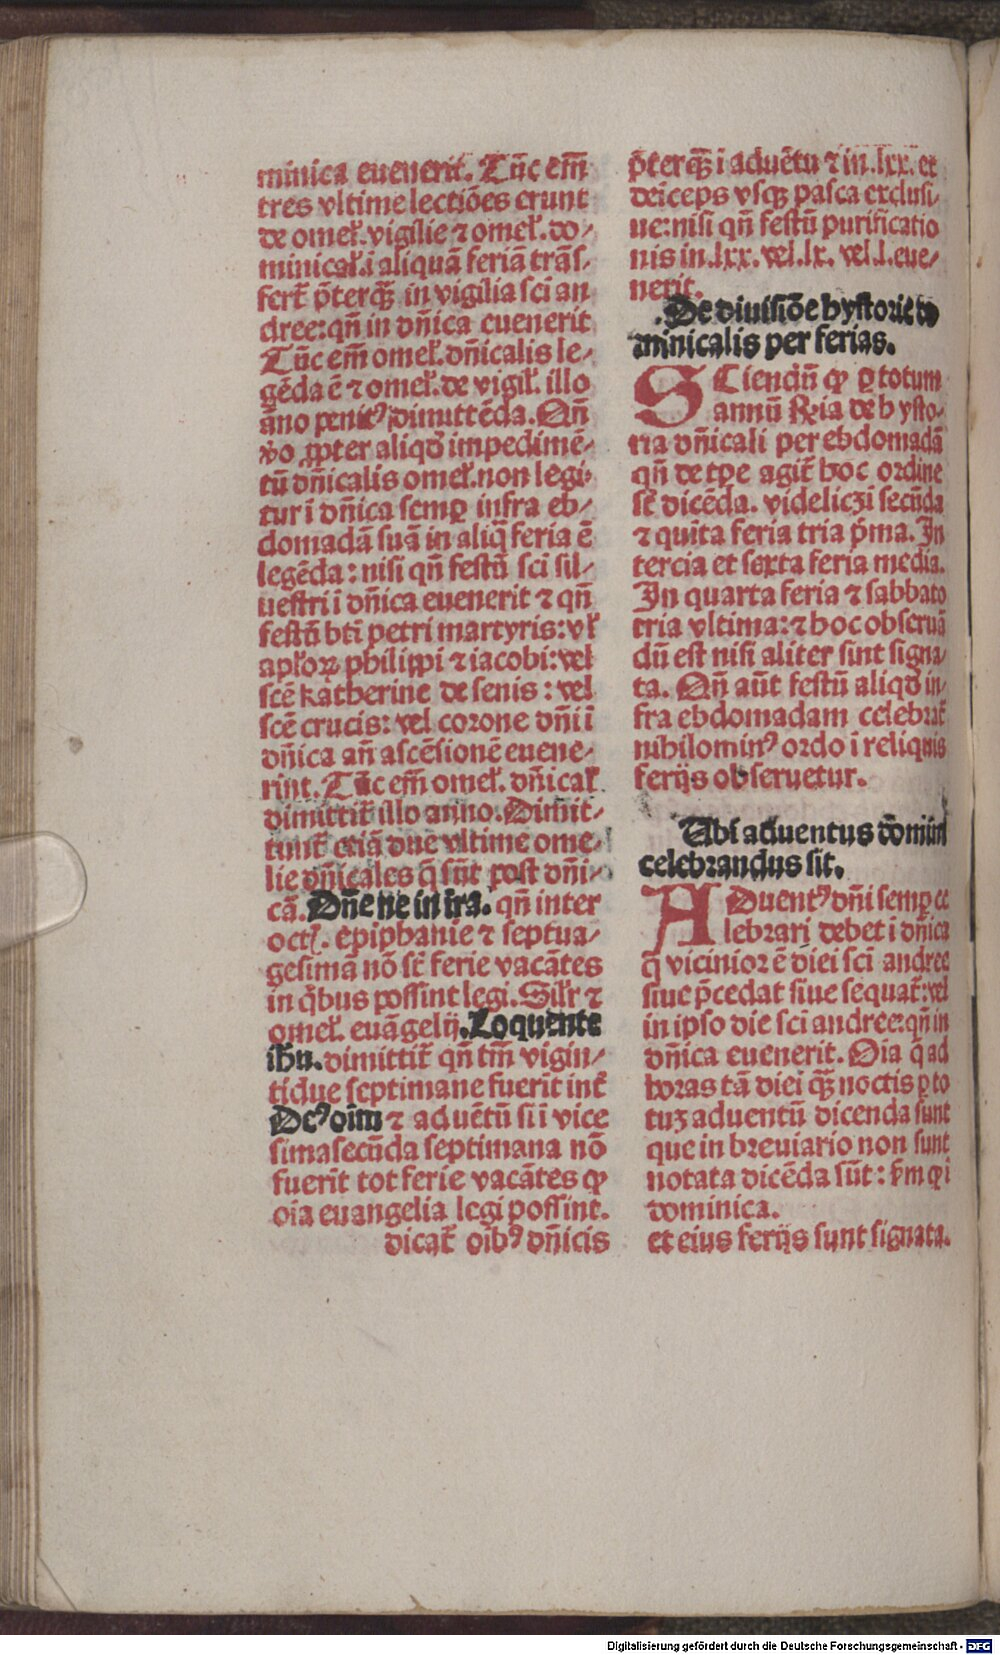 minica euenerit. Tūc em̄
tres vltime lectiōes erunt
de omeƚ. vigilie ⁊ omeƚ. do⸗
minicaƚ. i aliquā feriā trāſ⸗
fert̄ p̄terqꝫ̄ in vigilia ſci an
dree: qn̄ in dn̄ica euenerit
Tūc em̄ omeƚ. dn̄icalis le⸗
gēda ē ⁊ omeƚ. de vigiƚ. illo
āno penitꝰ dimittēda. Qn̄
v̄o ꝓpter aliqd̄ impedimē⸗
tū dn̄icalis omeƚ. non legi⸗
tur i dn̄ica ſemꝑ infra eb⸗
domadā ſuā in aliq̄ feria ē
legēda: niſi qn̄ feſtū ſci ſil⸗
ueſtri i dn̄ica euenerit ⁊ qn̄
feſtū bti petri martyris: vƚ
apƚoꝝ philippi ⁊ iacobi: vel
ſcē katherine de ſenis: vel
ſcē crucis: vel corone dn̄i i
dn̄ica an̄ aſcēſionē euene⸗
rint. Tūc em̄ omeƚ. dn̄icaƚ
dimittit̄ illo anno. Dimit⸗
tunt̄ etiā due vltime ome⸗
lie dn̄icales q̄ ſūt poſt dn̄i⸗
cā. Dn̄e ne in ira. qn̄ inter
oct. epiphanie ⁊ ſeptua⸗
geſimā nō ſt̄ ferie vacātes
in q̇bus poſſint legi. Silr ⁊
omeƚ. euāgelij. Loquente
ihū. dimittit̄ qn̄ tm̄ vigin⸗
tidue ſeptimane fuerit int̄
Deꝰ oim̄ ⁊ aduētū ſi i vice
ſimaſecūda ſeptimana nō
fuerit tot ferie vacātes ꝙ
oīa euangelia legi poſſint.
dicat̄ oībꝰ dn̄icis
p̄terqꝫ̄ i aduētu ⁊ in .lxx. et
deīceps vſqꝫ paſca excluſi⸗
ue: niſi qn̄ feſtū purificatio
nis in .lxx. vel .lx. vel .l. eue⸗
nerit.
De diuiſiōe hyſtorie do
minicalis per ferias.
SCiendū ꝙ ꝑ totum
annū ꝶia de hyſto⸗
ria dn̄icali per ebdomadā
qn̄ de tꝑe agit̄ hoc ordine
ſt̄ dicēda. videliczi ſecūda
⁊ quīta feria tria p̄ma. In
tercia et ſexta feria media.
In quarta feria ⁊ ſabbato
tria vltima: ⁊ hoc obſeruā
dū eſt niſi aliter ſint ſigna⸗
ta. Qn̄ aūt feſtū aliqd̄ in⸗
fra ebdomadam celebrat̄
nihilominꝰ ordo i reliquis
ferijs obſeruetur.
Ubi aduentus dōmini
celebrandus ſit.
ADuentꝰ dn̄i ſemꝑ ce
lebrari debet i dn̄ica
q̄ vicinior ē diei ſci andree
ſiue p̄cedat ſiue ſequat̄: vel
in ipſo die ſci andree: qn̄ in
dn̄ica euenerit. Oīa q̄ ad
horas tā diei qꝫ̄ noctis ꝑ to
tuꝫ aduentū dicenda ſunt
que in breuiario non ſunt
notata dicēda ſūt: ẜm ꝙ i
dominica.
et eius ferijs ſunt ſignata.
Digitalisierung gefördert durch die Deutsche Forschungsgemeinschaft - DFG